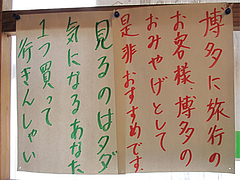 博多に旅行の
お客様、博多の
おみやげとして
是非おすすめです。
見るのはタダ
気になるあなた
1つ買って
行きんしゃい